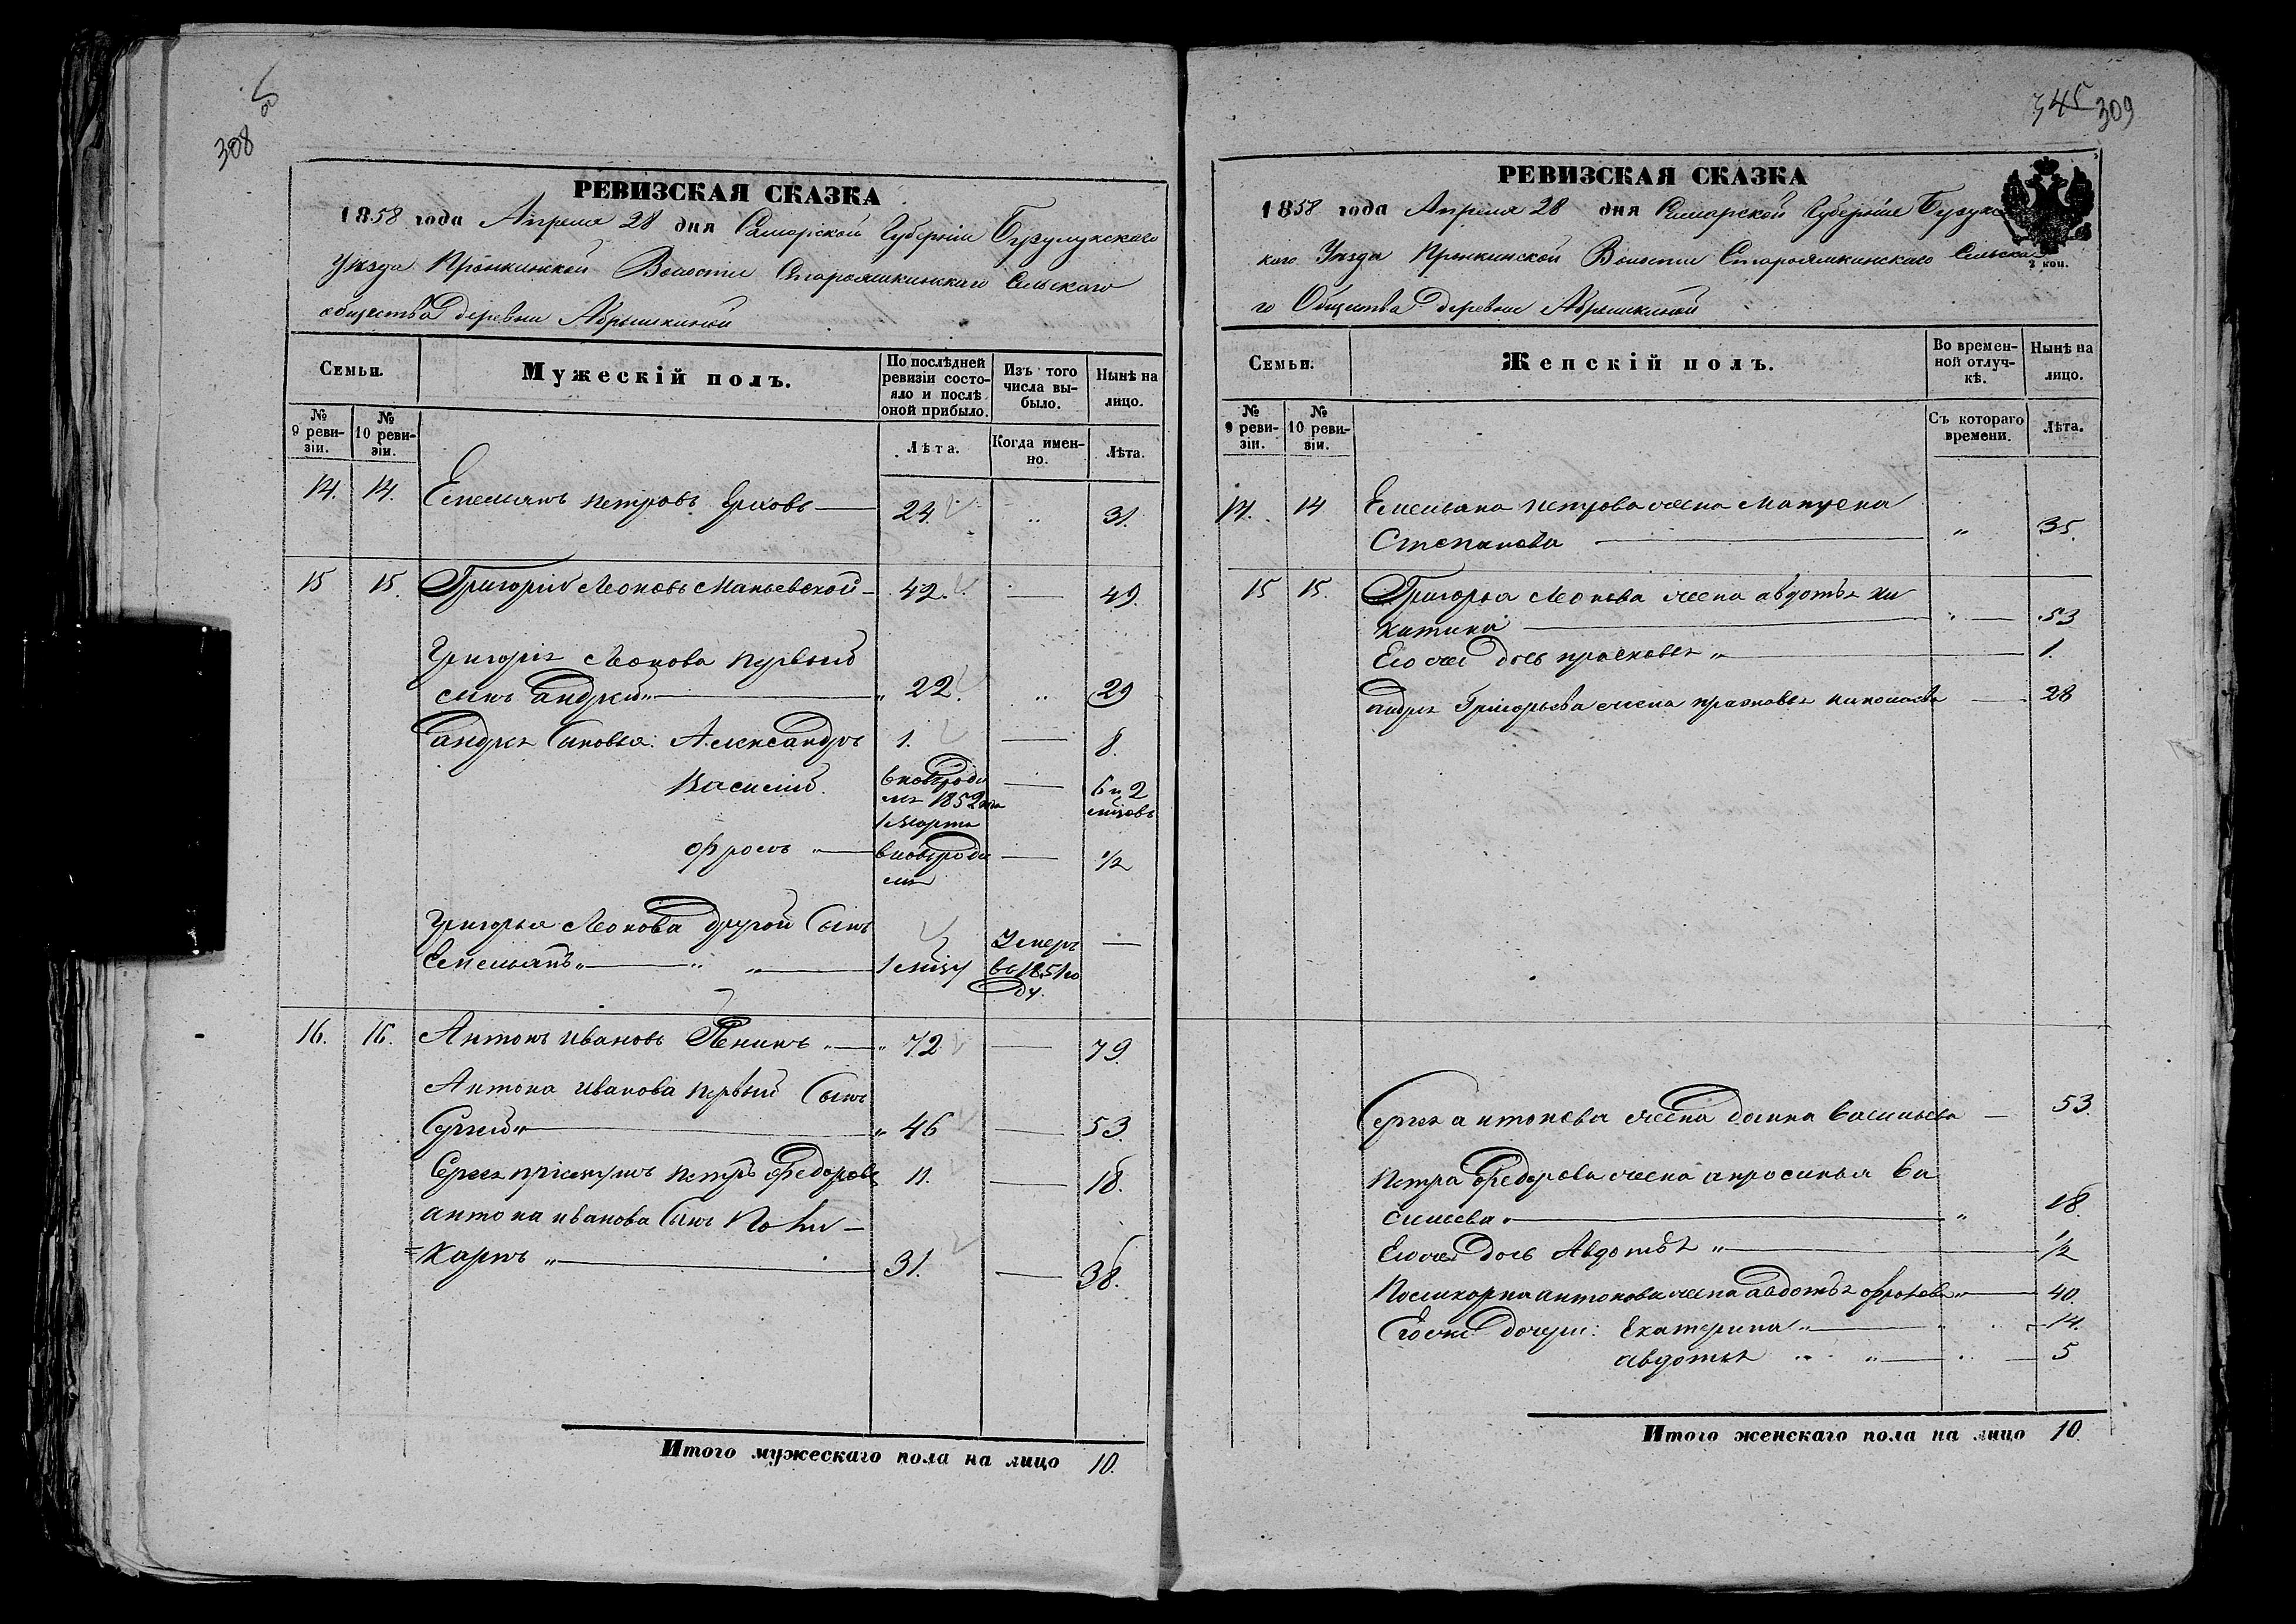 308
РЕВИЗСКАЯ СКАЗКА
1858 года Апреля 28 дня Самарской Губерніи Бузулукскаго
Уѣзда Пронкинской Волости Старояшкинскаго Сельскаго
общества деревни Абрышкиной
Семьи. Мужескій полъ. По послѣдней ревизіи состояло и послѣ оной прибыло. Изъ того числа выбыло. Нынѣ на лицо.
№ 9 ревизіи. № 10 ревизіи. Лѣта. Когда именно. Лѣта.
14. 14. Емельянъ Петровъ 24. „ 31.
15 15. Григорій Леоновъ 42. — 49.
Григорья Леонова первый
сынъ андрей „ „ 22. „ 29
андрея Сыновья: Александръ 1. — 8.
Василий. вновь роди — 6 и 2
лся 1852 года
1 марта
фролъ „ вновь роди — 1/2
лся
Григорья Леонова другой Сынъ Умеръ —
Емельянъ „ „ „ въ 1851 го
ду.
16. 16. Антонъ Ивановъ „ „ 72 — 79.
Антона Иванова первый Сынъ
Сергей „ „ 46 — 53.
Сергея Петръ Федоровъ 11. — 18.
антона иванова Сынъ Поли-
=карпъ „ 31. — 38.
Итого мужескаго пола на лицо 10.
345 309
РЕВИЗСКАЯ СКАЗКА
1858 года Апреля 28 дня Самарской Губерніи Бузулукс
каго Уѣзда Пронкинской Волости Старояшкинскаго Сельска
2 коп.
го Общества деревни Абрышкиной
Семьи. Женскій полъ. Во временной отлучкѣ. Нынѣ на лицо.
№ 9 ревизіи. № 10 ревизіи. Съ котораго времени. Лѣта.
14. 14 Емельяна петрова жена Матрена
Степанова „ 35.
15 15. Григорья Леонова жена авдотья ни
китина „ 53
Его же дочь прасковья „ 1.
андрея Григорьева жена прасковья николаева 28
Сергея антонова жена домна васильева — 53.
Петра Федорова жена апросинья ва
сильева „ „ 18.
Его же дочь Авдотья „ 1/2
Поликарпа антонова жена авдотья фролова „ 40.
Его же дочери: Екатерина „ 14.
авдотья „ „ 5
Итого женскаго пола на лицо 10.